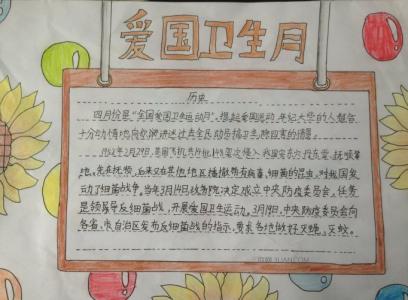 爱国卫生月
历史
四月份是“全国爱国卫生运动月”。提起爱国运动,年纪大些的人都会
十分动情地向你讲述过去全民动员搞卫生,除四害的情景。
1952年2月29日,美国飞机共14批,148架次侵入我国安东、抚顺等
地。先在抚顺,后来又在其他地区播撒带有病毒、细菌的昆虫,对我国发
动了细菌战争。当年3月14日政务院决定成立中央防疫委员会。任务
是领导反细菌战,开展爱国卫生运动。3月19日,中央防疫委员会向
各省、市自治区发布反细菌战的指示,要求各地做好灭蝇、灭蚊。